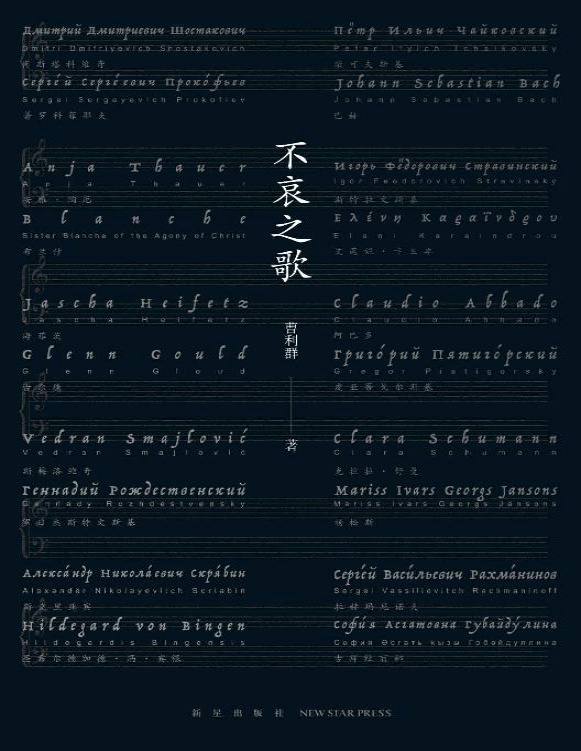 Дмитрий Дмитриевич Шостакович
Dmitri Dmitriyevich Shostakovich
肖斯塔科维奇
Серге́й Серге́евич Проко́фьев
Sergei Sergeyevich Prokofiev
普罗科菲耶夫
Anja Thauer
Anja Thauer
安雅·陶厄
Blanche
Sister Blanche of the Agony of Christ
布兰什
Jascha Heifetz
Jascha Heifetz
海菲茨
Glenn Gould
Glenn Gloud
古尔德
Vedran Smajlović
Vedran Smajlović
斯梅洛维奇
Геннадий Рождественский
Gennady Rozhdestvensky
罗日杰斯特文斯基
Алекса́ндр Никола́евич Скря́бин
Alexander Nikolayevitch Scriabin
斯克里亚宾
Hildegard von Bingen
Hildegardis Bingensis
圣希尔德加德·冯·宾根
Пётр Ильич Чайковский
Peter Ilyich Tchaikovsky
柴可夫斯基
Johann Sebastian Bach
Johann Sebastian Bach
巴赫
Игорь Фёдорович Стравинский
Igor Feodorovich Stravinsky
斯特拉文斯基
Ελένη Καραΐνδρου
Eleni Karaindrou
Claudio Abbado
Claudio Abbado
阿巴多
Григо́рий Пятиго́рский
Gregor Piatigorsky
皮亚蒂戈尔斯基
Clara Schumann
Clara Schumann
克拉拉·舒曼
Mariss Ivars Georgs Jansons
Mariss Ivars Georgs Jansons
杨松斯
Серге́й Васи́льевич Рахма́нинов
Sergei Vassilievitch Rachmaninoff
拉赫玛尼诺夫
Софи́я Асгатовна Губайду́лина
София Әсгать кызы Гобәйдуллина
古拜杜丽娜
不哀之歌
曹利群
著
新星出版社 NEW STAR PRESS